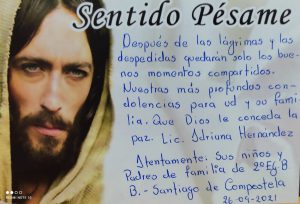 Sentido Pésame
Después de las lágrimas y las
despedidas quedarán solo los bue-
nos momentos compartidos.
Nuestras más profundos con-
dolencias para ud y su fami
lia. Que Dios le conceda la
paz. Lic. Adriana Hernández
Atentamente: Sus niños y
Padres de familia de 2º EGB
B.- Santiago de Compostela
26-09-2021